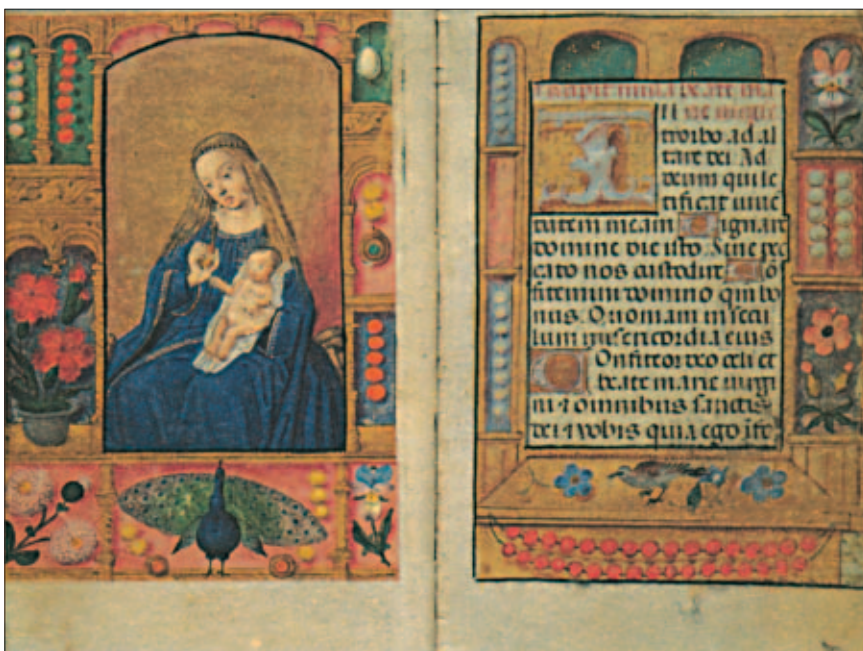 Incipit missa beate ma
rie
troibo ad al
tare dei Ad
deum qui le
tificat iuue
tutem meam ignare
domine die isto Sine pec
cato nos custodire Co
fitemini domino qm bo
nus. Quoniam in secu
lum misericordia eius
Confiteor deo celi et
beate marie virgi
ni ⁊ omnibus sanctis
dei ⁊ vobis quia ego